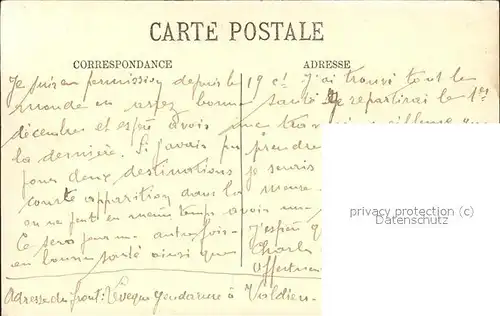 CARTE POSTALE
CORRESPONDANCE
ADRESSE
Je suis en permission depuis le 19 ct. J'ai trouvé tout le
monde en assez bonne santé. Je repartirai le 1er
décembre et espère avoir une
la dernière. Si j'avais pu prendre
pour deux destinations je serais
courte apparition dans la Meuse.
on ne peut en même temps avoir
Ce sera pour une autre fois. J'espère q
en bonne santé ainsi que Charles
Affectueu
Adresse du front: Evêque Gendarme à Valdieu
privacy protection (c)
Datenschutz